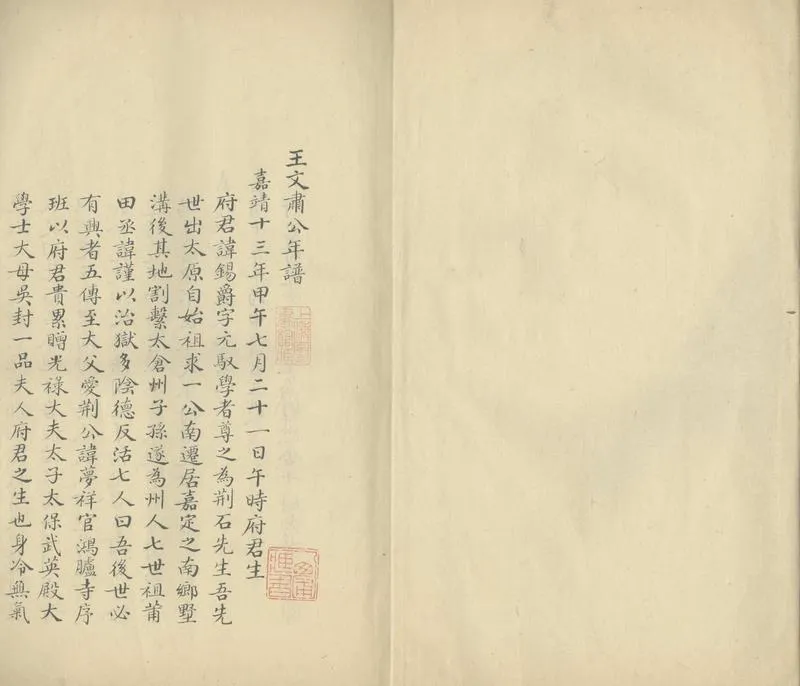 王文肅公年譜
嘉靖十三年甲午七月二十一日午時府君生
府君諱錫爵字元馭學者尊之為荆石先生吾先
世出太原自始祖求一公南遷居嘉定之南鄉墅
溝後其地割繫太倉州子孫遂為州人七世祖莆
田丞諱謹以治獄多陰德反活七人曰吾後世必
有興者五傳至大父愛荆公諱夢祥官鴻臚寺序
班以府君貴累贈光祿大夫太子太保武英殿大
學士大母吳封一品夫人府君之生也身冷無氣